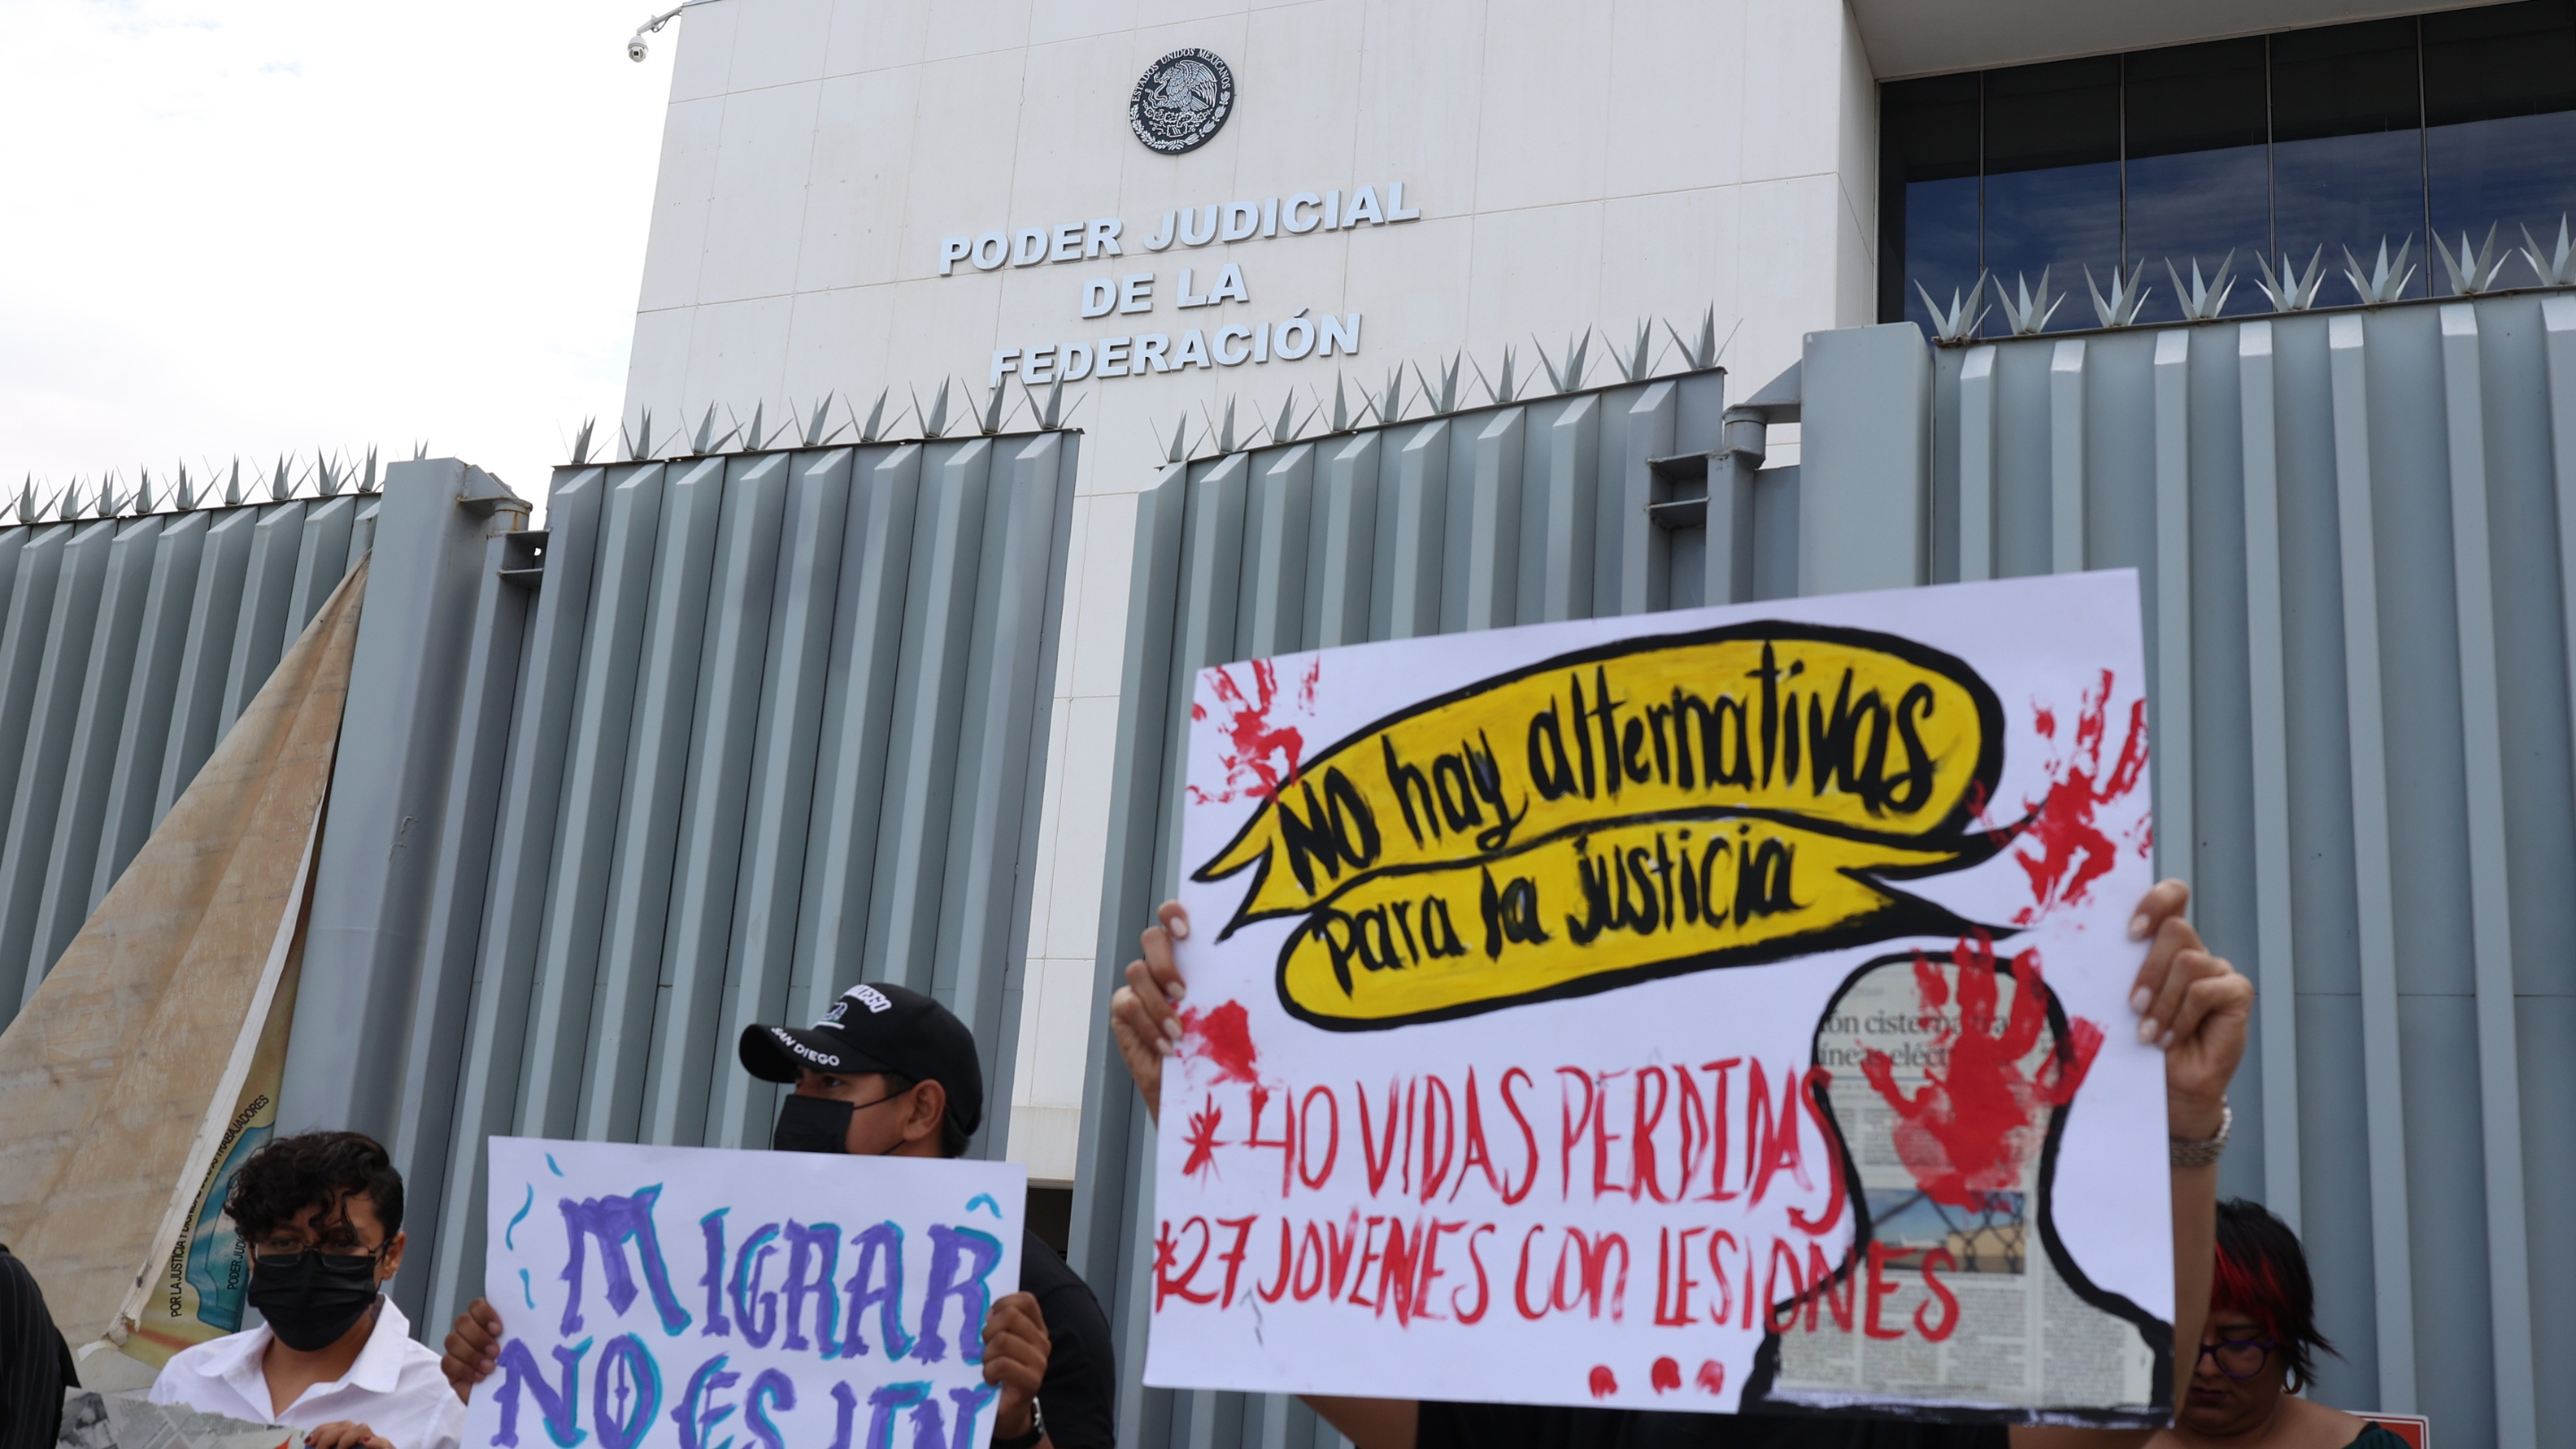 ESTADOS UNIDOS MEXICANOS
PODER JUDICIAL
DE LA
FEDERACIÓN
NO hay alternativas
para la justicia
* 40 VIDAS PERDIDAS
*27 JOVENES CON LESIONES
SAN DIEGO
MIGRAR
NO ES UN
POR LA JUSTICIA Y
TRABAJADORES
PODER JUD